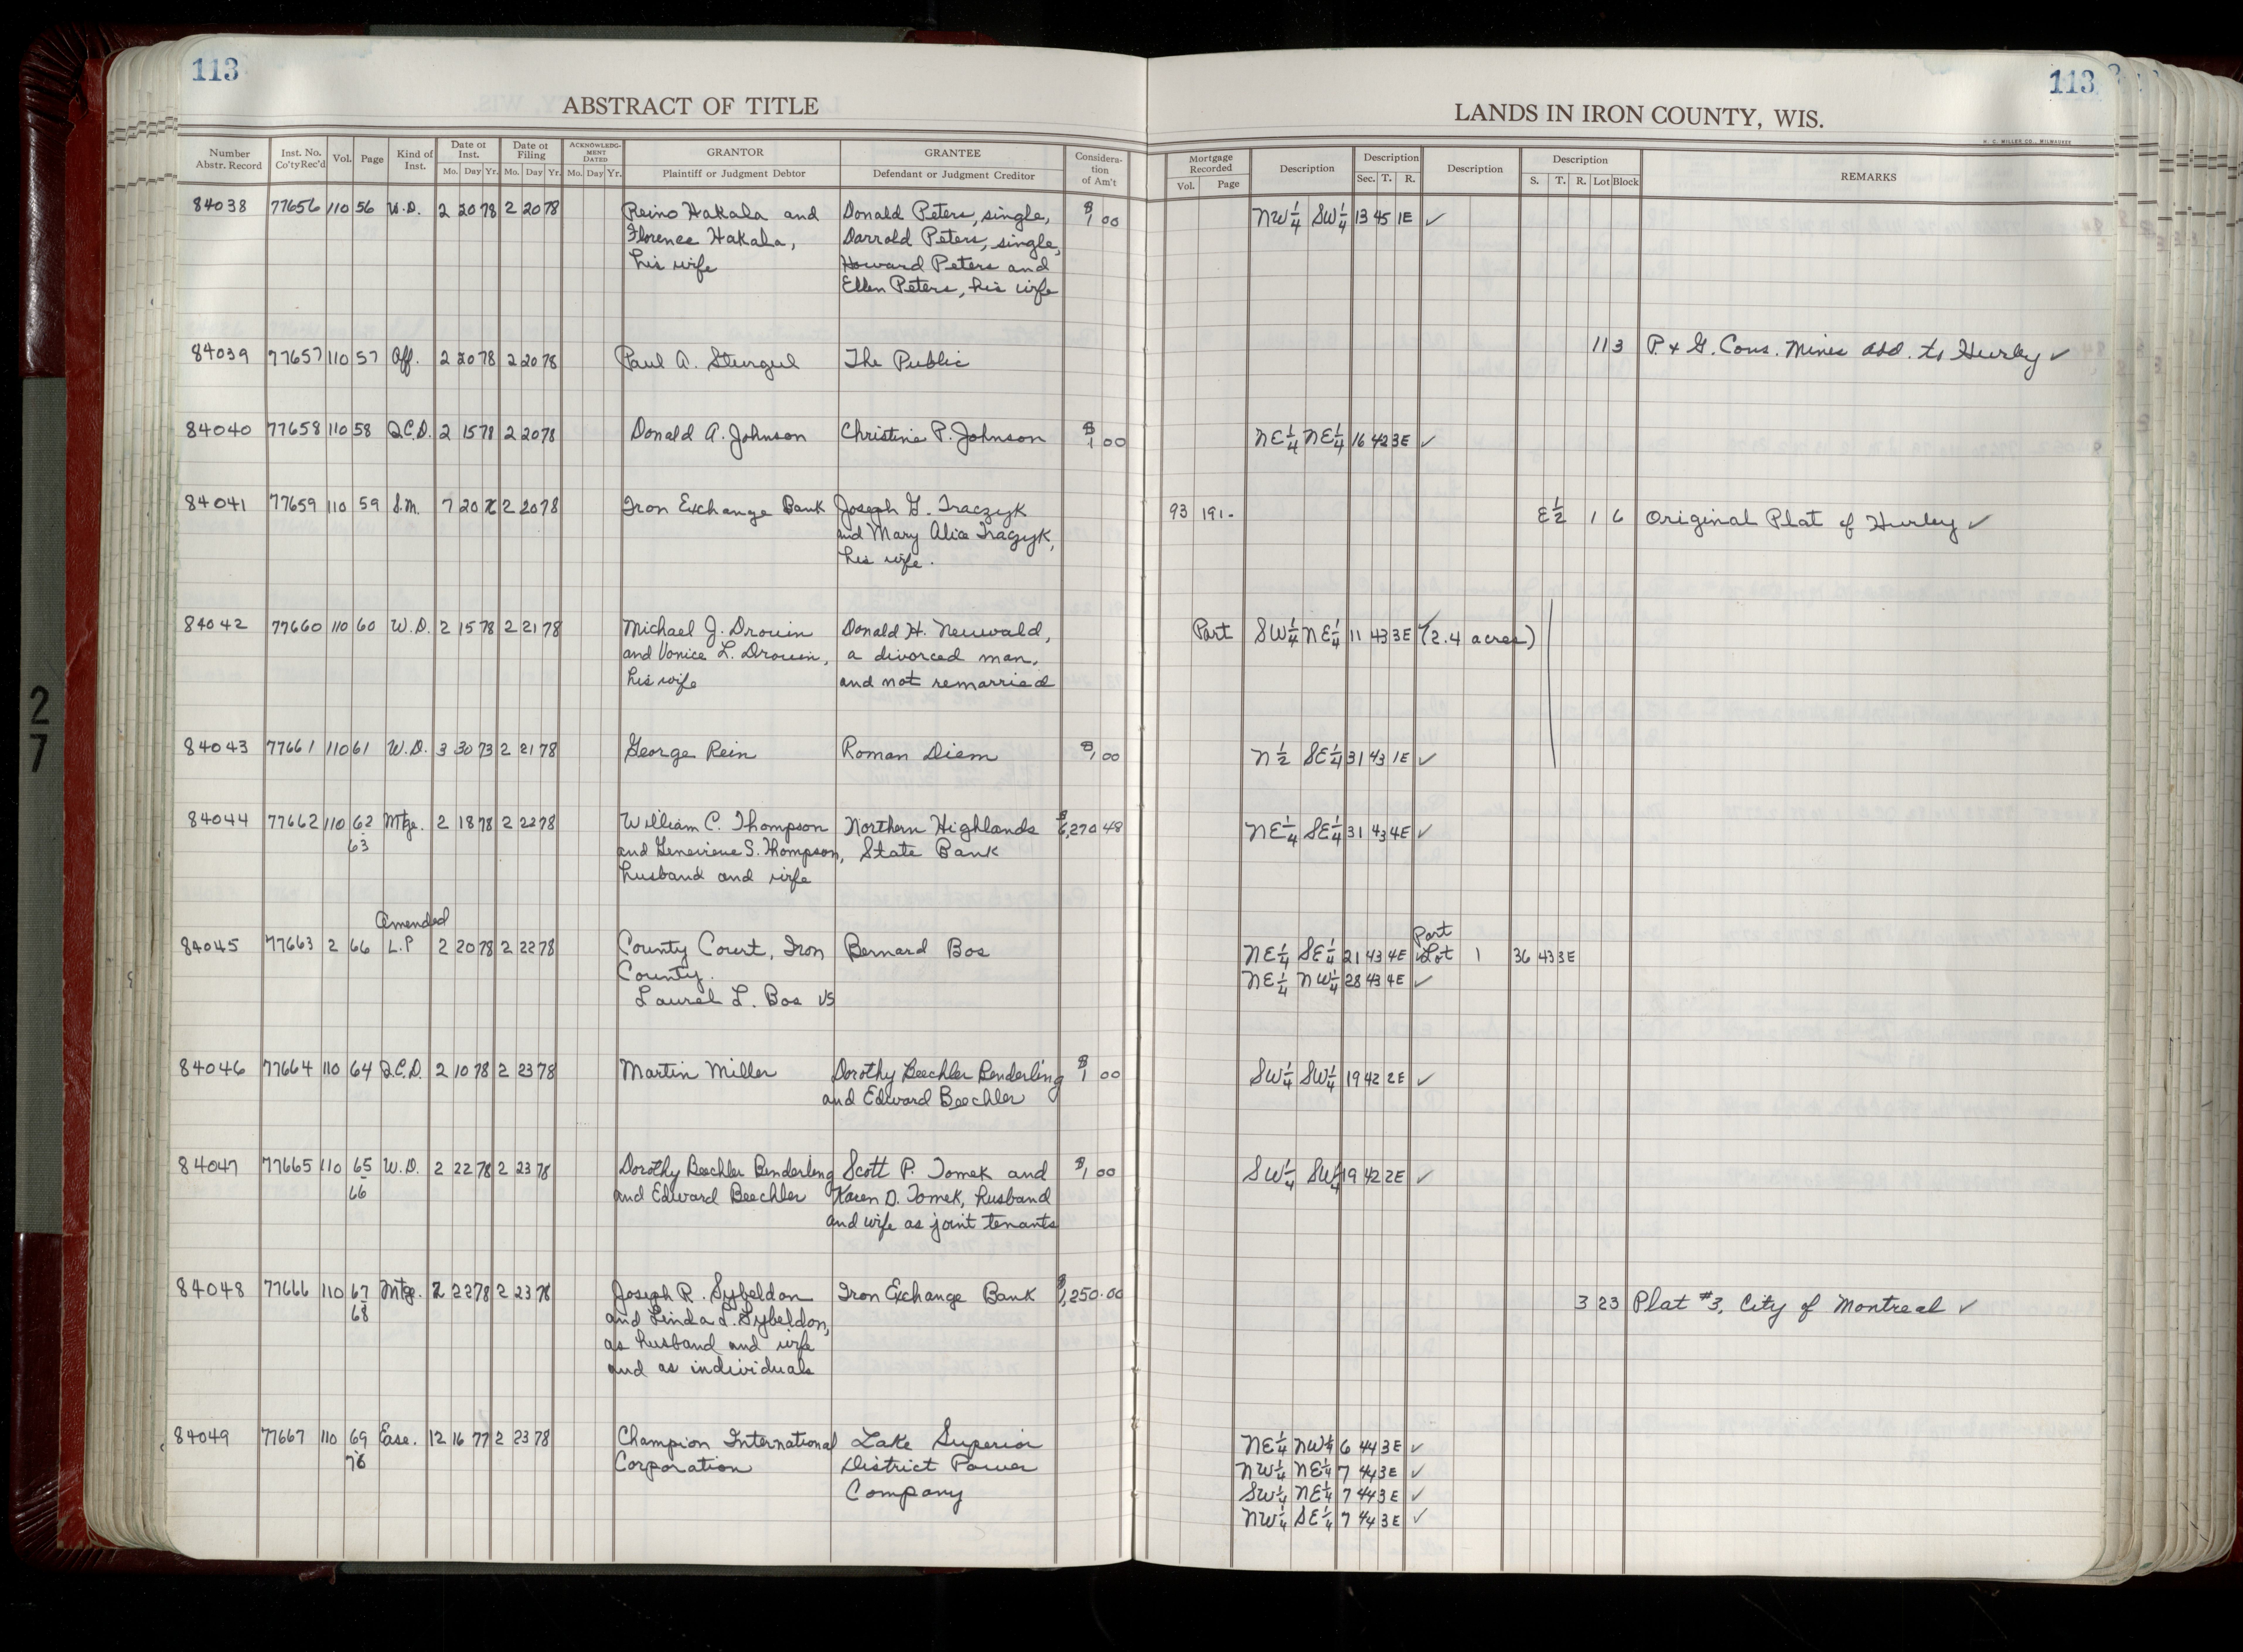 113
113
ABSTRACT OF TITLE
LANDS IN IRON COUNTY, WIS.
H. C. MILLER CO., MILWAUKEE
Number Abstr. Record Inst. No. Co'ty Rec'd Vol. Page Kind of Inst. Date of Inst. Mo. Day Yr. Date of Filing Mo. Day Yr. ACKNOWLEDGMENT DATED Mo. Day Yr. GRANTOR Plaintiff or Judgment Debtor GRANTEE Defendant or Judgment Creditor Consideration of Am't Mortgage Recorded Vol. Page Description Description Sec. T. R. Description Description S. T. R. Lot Block REMARKS
84038 77656 110 56 W.D. 2 20 78 2 20 78 Reino Hakala and Donald Peters, single, $1 00 NW¼ SW¼ 13 45 1E ✓
Florence Hakala, Darrold Peters, single,
his wife Howard Peters and
Ellen Peters, his wife
84039 77657 110 57 Aff. 2 20 78 2 20 78 Paul A. Sturgul The Public 11 3 P. & G. Cons. Mines Add. to Hurley ✓
84040 77658 110 58 Q.C.D. 2 15 78 2 20 78 Donald A. Johnson Christine P. Johnson $1 00 NE¼ NE¼ 16 42 3E ✓
84041 77659 110 59 S.M. 7 20 2 20 78 Iron Exchange Bank Joseph G. Traczyk 93 191- E½ 1 6 Original Plat of Hurley ✓
and Mary Alice Traczyk,
his wife.
84042 77660 110 60 W.D. 2 15 78 2 21 78 Michael J. Drouin Donald H. Neuwald, Part SW¼ NE¼ 11 43 3E ✓ (2.4 acres)
and Vonice L. Drouin, a divorced man,
his wife and not remarried
84043 77661 110 61 W.D. 3 30 73 2 21 78 George Rein Roman Diem $1 00 N½ SE¼ 31 43 1E ✓
84044 77662 110 62 Mtge. 2 18 78 2 22 78 William C. Thompson Northern Highlands $6,270 48 NE¼ SE¼ 31 43 4E ✓
63 and Genevieve S. Thompson, State Bank
husband and wife
Amended Part
84045 77663 2 66 L.P 2 20 78 2 22 78 County Court, Iron Bernard Boe NE¼ SE¼ 21 43 4E ✓ Lot 1 36 43 3E
County. NE¼ NW¼ 28 43 4E ✓
Laurel L. Boe vs
84046 77664 110 64 Q.C.D. 2 10 78 2 23 78 Martin Miller Dorothy Beechler Benderling $1 00 SW¼ SW¼ 19 42 2E ✓
and Edward Beechler
84047 77665 110 65 W.D. 2 22 78 2 23 78 Dorothy Beechler Benderling Scott P. Tomek and $1 00 SW¼ SW¼ 19 42 2E ✓
66 and Edward Beechler Karen D. Tomek, husband
and wife as joint tenants
84048 77666 110 67 Mtge. 2 22 78 2 23 78 Joseph R. Sybeldon Iron Exchange Bank $1,250.00 3 23 Plat #3, City of Montreal ✓
68 and Linda L. Sybeldon,
as husband and wife
and as individuals
84049 77667 110 69 Ease. 12 16 77 2 23 78 Champion International Lake Superior NE¼ NW¼ 6 44 3E ✓
76 Corporation District Power NW¼ NE¼ 7 44 3E ✓
Company SW¼ NE¼ 7 44 3E ✓
NW¼ SE¼ 7 44 3E ✓
27